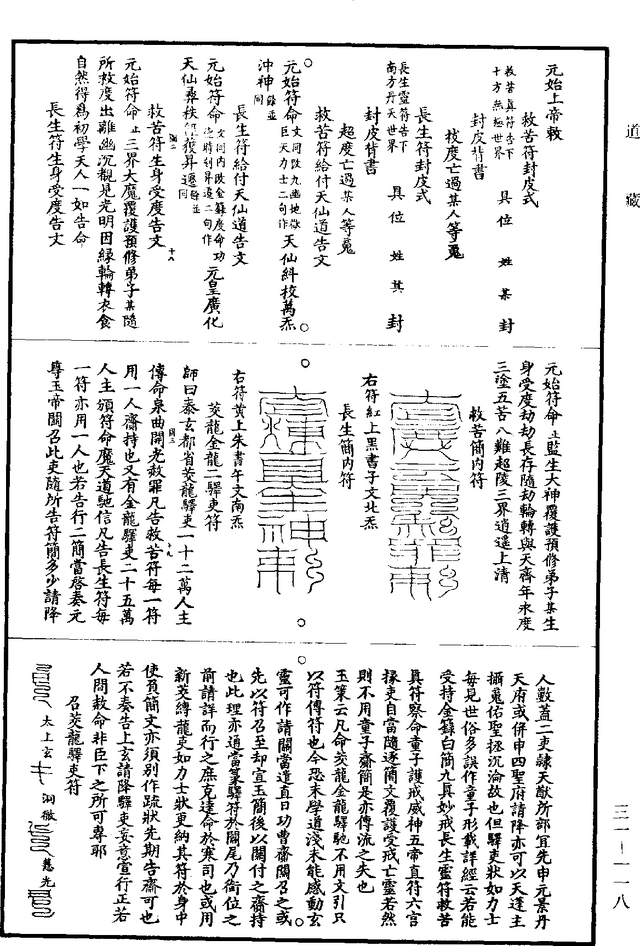 道藏
元始上帝敕
救苦符封皮式
救苦真符告下
十方無極世界
具位姓某封
封皮背書
拔度亡過某人等䰟
長生符封皮式
長生靈符告下
南方丹天世界
具位姓某封
封皮背書
超度亡過某人等䰟
救苦符給付天仙道告文
元始符命文同内改九幽地獄巨天力士二句作天仙糾校萬炁
冲神餘並同
長生符給付天仙道告文
元始符命文同内改金籙度命功
元皇廣化
天仙彝秩
昇遷餘並同
救苦符生身受度告文
元始符命云云三界大魔覆護預修弟子某隨
所救度出離幽沉覩見光明因緣輪轉衣食
自然得爲初學天人一如告命
長生符生身受度告文
元始符命云云監生大神覆護預修弟子某生
身受度劫劫長存隨劫輪轉與天齊年永度
三塗五苦八難超陵三界逍遥上清
救苦簡内符
右符紅上黑書子文北炁
長生簡内符
右符黄上朱書午文南炁
茭龍金龍二驛吏符
師曰泰玄都省茭龍驛吏一十二萬人主
傳命泉曲開光赦罪凡告救苦符每一符
用一人齋持也又有金龍驛吏二十五萬
人主頒符命魔天道馳信凡告長生符每
一符亦用一人也若告行二簡當啓奏元
尊玉帝關召此吏隨所告符簡多少請降
人數蓋二吏隸天猷所部宜先申元景丹
天府或併申四聖府請降亦可以天蓬主
攝䰟佑聖拯沉淪故也但驛吏狀如力士
每見世俗多誤作童子形載詳經云若能
受持金籙白簡九真妙戒長生靈符救苦
真符察命童子護戒威神五帝直符六宫
掾吏自當隨逐簡文覆護受戒亡靈若然
則不用童子齋簡是亦傳流之失也
玉策云凡命茭龍金龍驛馳不用文引只
以符傳符也今恐末學道淺未能感動玄
靈可作請關當進直日功曹齋關召之或
先以符召至却宣玉簡後以關付之齋持
也此理亦道當篆驛符於關尾乃銜位之
前請詳而行之庶克達命於寒司也或用
新茭縛龍吏如力士狀更納其符於身中
使負簡文亦須别作疏狀先期告齋可也
若不奏告上玄請降驛吏妄意宣行正若
人間赦命非臣下之所可專耶
召茭龍驛吏符
太上玄
洞微
慧光
三一—一一八